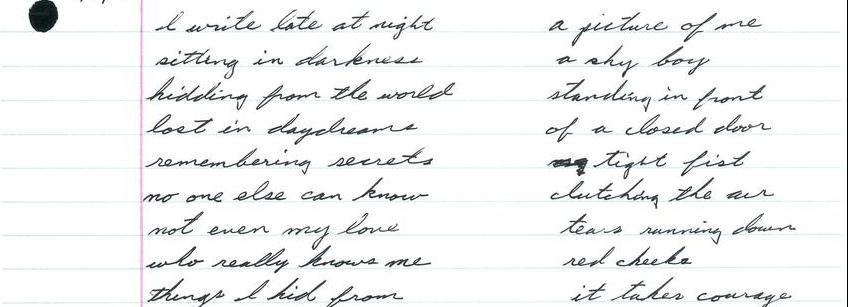 I write late at night
sitting in darkness
hidding from the world
lost in daydreams
remembering secrets
no one else can know
not even my love
who really knows me
things I hid from
a picture of me
a shy boy
standing in front
of a closed door
tight fist
clutching the air
tears running down
red cheeks
it takes courage